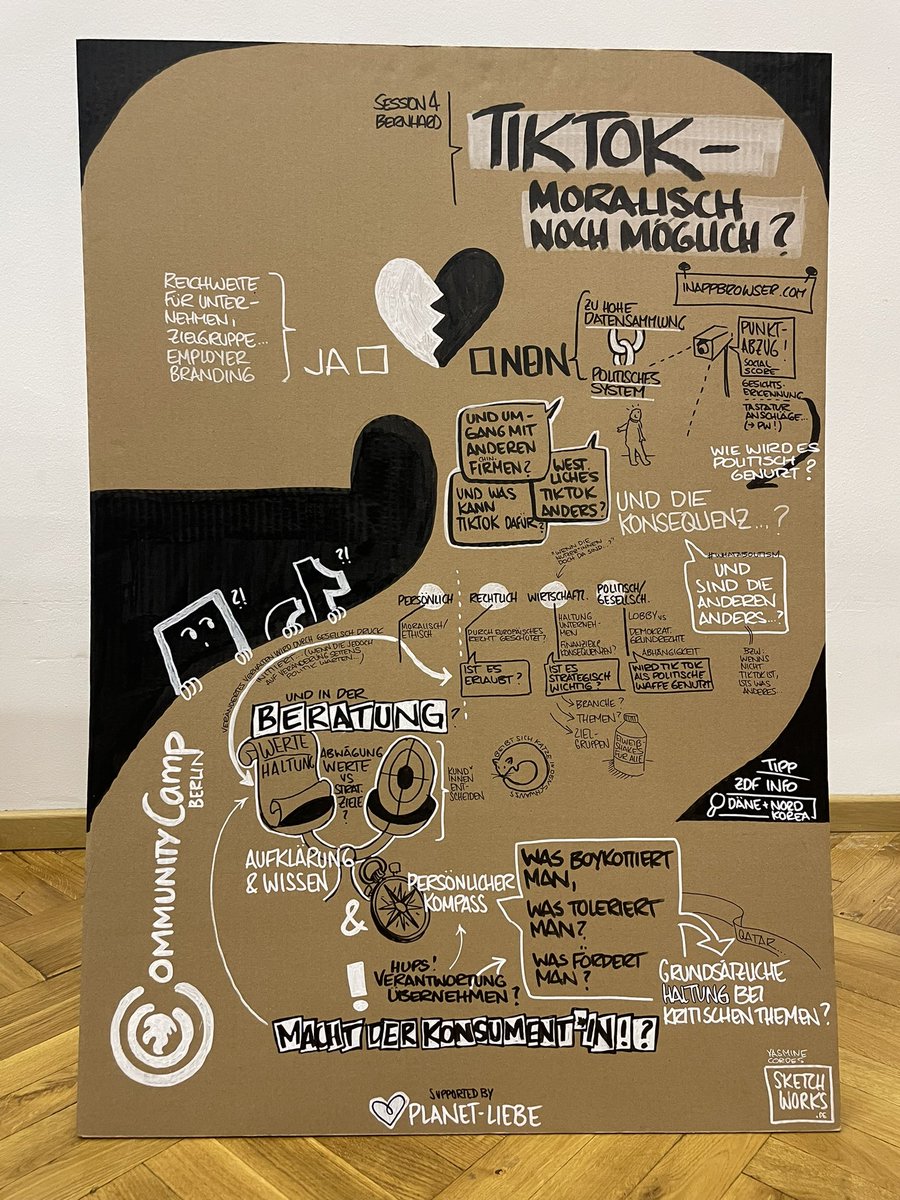 SESSION 4
BERNHARD
TIKTOK –
MORALISCH
NOCH MÖGLICH?
REICHWEITE
FÜR UNTER-
NEHMEN,
ZIELGRUPPE...
EMPLOYER
BRANDING
JA
NEIN
ZU HOHE
DATENSAMMLUNG
POLITISCHES
SYSTEM
INAPPBROWSER.COM
PUNKT-
ABZUG!
SOCIAL
SCORE
GESICHTS-
ERKENNUNG
TASTATUR
ANSCHLÄGE...
(→ PW!)
WIE WIRD ES
POLITISCH
GENUTZT?
UND UM-
GANG MIT
ANDEREN
CHIN.
FIRMEN?
WEST-
LICHES
TIKTOK
ANDERS?
UND WAS
KANN
TIKTOK DAFÜR?
UND DIE
KONSEQUENZ...?
#WHATABOUTISM
UND
SIND DIE
ANDEREN
ANDERS...?
BZW.
WENNS
NICHT
TIKTOK IST,
ISTS WAS
ANDERES.
"WENN DIE
NUTZER*INNEN
DOCH DA SIND...?"
PERSÖNLICH
MORALISCH/
ETHISCH
RECHTLICH
DURCH EUROPÄISCHES
RECHT GESCHÜTZT?
IST ES
ERLAUBT?
WIRTSCHAFTL.
HALTUNG
UNTERNEH-
MEN
FINANZIELLE
KONSEQUENZEN?
IST ES
STRATEGISCH
WICHTIG?
→ BRANCHE?
→ THEMEN?
→ ZIEL-
GRUPPEN
POLITISCH/
GESELLSCH.
LOBBY VS
DEMOKRAT.
GRUNDRECHTE
ABHÄNGIGKEIT
WIRD TIKTOK
ALS POLITISCHE
WAFFE GENUTZT
EIWEIß
SHAKES
FÜR ALLE
?!
?!
VERÄNDERTES VERHALTEN WIRD DURCH GESELLSCH. DRUCK
INITIIERT (WENN DIE JEDOCH
AUF VERÄNDERUNG SEITENS
POLITIK WARTEN...)
UND IN DER
BERATUNG?
WERTE
HALTUNG
ABWÄGUNG
WERTE
VS
STRAT.
ZIELE
?
KUND*
INNEN
ENT-
SCHEIDEN
BEIßT SICH KATZE IN DEN SCHWANZ
TIPP
ZDF INFO
DÄNE + NORD
KOREA
AUFKLÄRUNG
& WISSEN
&
PERSÖNLICHER
KOMPASS
WAS BOYKOTTIERT
MAN,
WAS TOLERIERT
MAN?
WAS FÖRDERT
MAN?
QATAR...
GRUNDSÄTZLICHE
HALTUNG BEI
KRITISCHEN THEMEN?
!
HUPS!
VERANTWORTUNG
ÜBERNEHMEN?
MACHT DER KONSUMENT*IN!?
COMMUNITYCAMP
BERLIN
SUPPORTED BY
PLANET-LIEBE
YASMINE
CORDES
SKETCH
WORKS
.DE